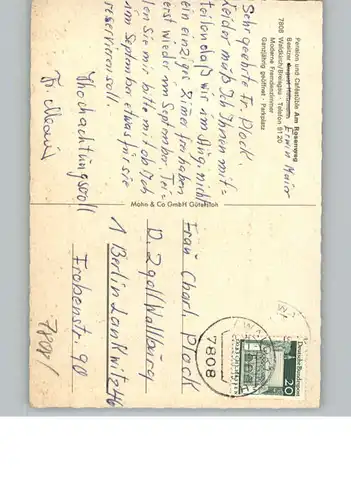 Pension und Cafestüble Am Rosenweg
Besitzer
Erwin Maier
7808 Waldkirch/Breisgau · Telefon 91 20
Moderne Fremdenzimmer
Ganzjährig geöffnet · Parkplatz
Sehr geehrte Fr. Plock.
Leider muß Ich Ihnen mit-
teilen daß wir im Aug. nicht
ein einziges Zimer frei haben
erst wieder im September. Tei-
len Sie mir bitte mit ob Ich
im September etwas für sie
reservieren soll.
Hochachtungsvoll
Fr. Maier
Mohn & Co GmbH Gütersloh
Frau Charl. Plock
1 Berlin Lankwitz 46
Frobenstr. 90
7808/
7808
Deutsche Bundespost
20